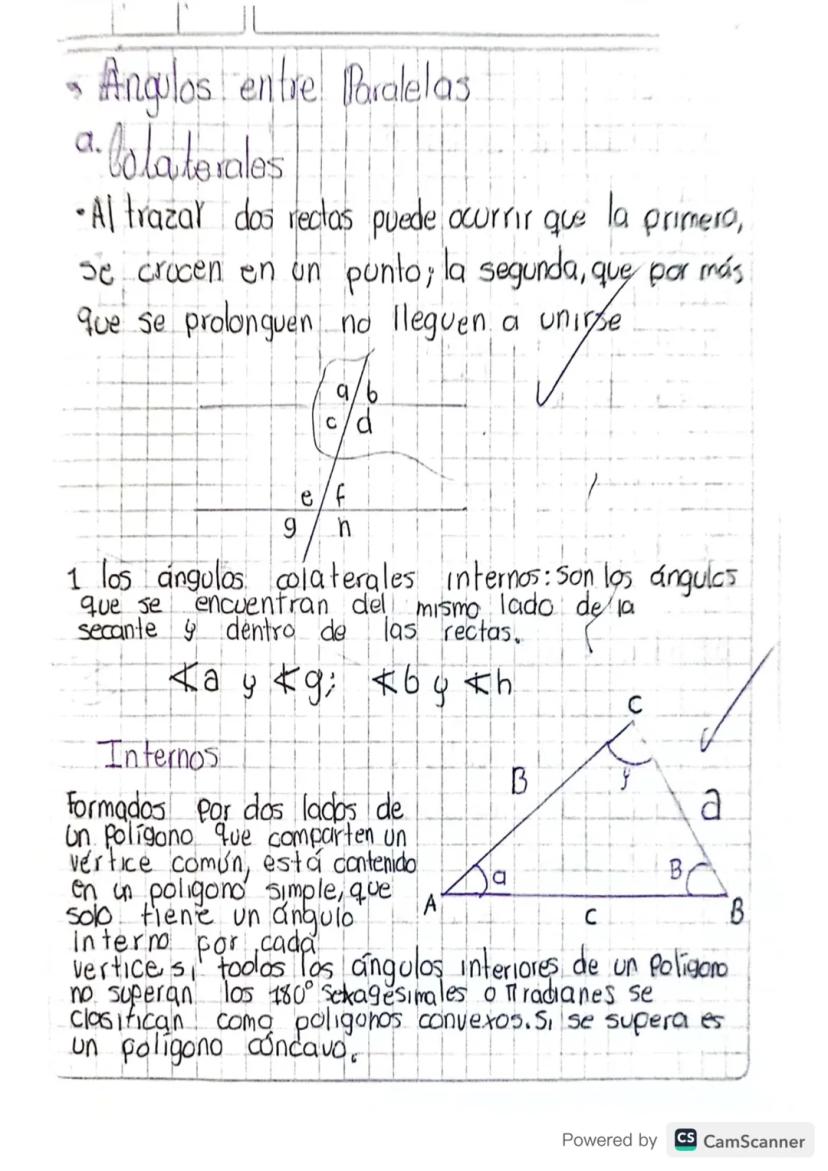 Ángulos entre Paralelas
a. Colaterales
• Al trazar dos rectas puede ocurrir que la primera,
se crucen en un punto; la segunda, que por más
que se prolonguen no lleguen a unirse
a b
c d
e f
g h
1 los ángulos colaterales internos: Son los ángulos
que se encuentran del mismo lado de la
secante y dentro de las rectas.
∢a y ∢g; ∢b y ∢h
Internos
Formados por dos lados de
un Polígono que comparten un
vértice común, está contenido
en un poligono simple, que
solo tiene un ángulo
interno por cada
vertice si todos los ángulos interiores de un Poligono
no superan los 180° sexagésimales o π radianes se
clasifican como poligonos convexos. Si se supera es
un polígono cóncavo.
C
y
B
a
a
B
A
c
B
Powered by CS CamScanner